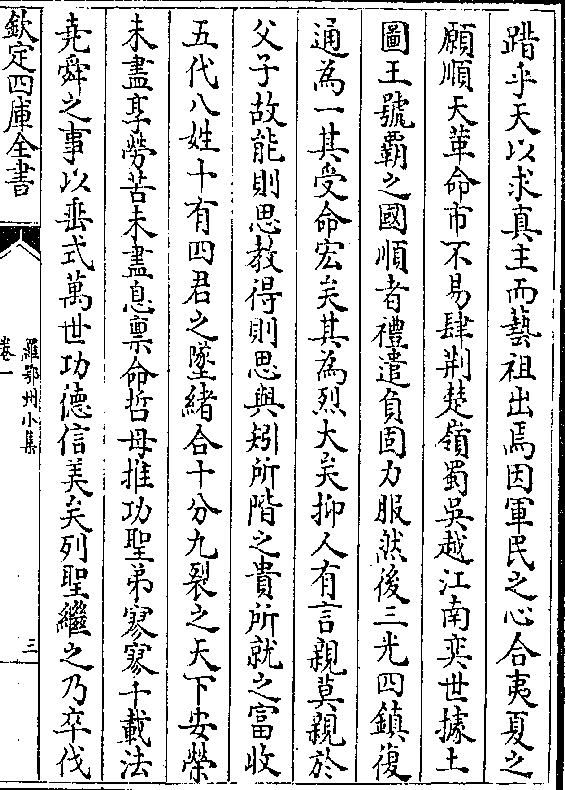 踖乎天以求真主而藝祖出焉因軍民之心合夷夏之
願順天革命市不易肆荆楚嶺蜀吳越江南奕世據土
圖王號覇之國順者禮遣負固力服然後三光四鎮復
通為一其受命宏矣其為烈大矣抑人有言親莫親於
父子故能則思教得則思與矧所階之貴所就之富收
五代八姓十有四君之墜緒合十分九裂之天下安榮
未盡享勞苦未盡息禀命哲母推功聖弟寥寥千載法
堯舜之事以垂式萬世功德信美矣列聖繼之乃卒伐
欽定四庫全書
羅鄂州小集
卷一
三